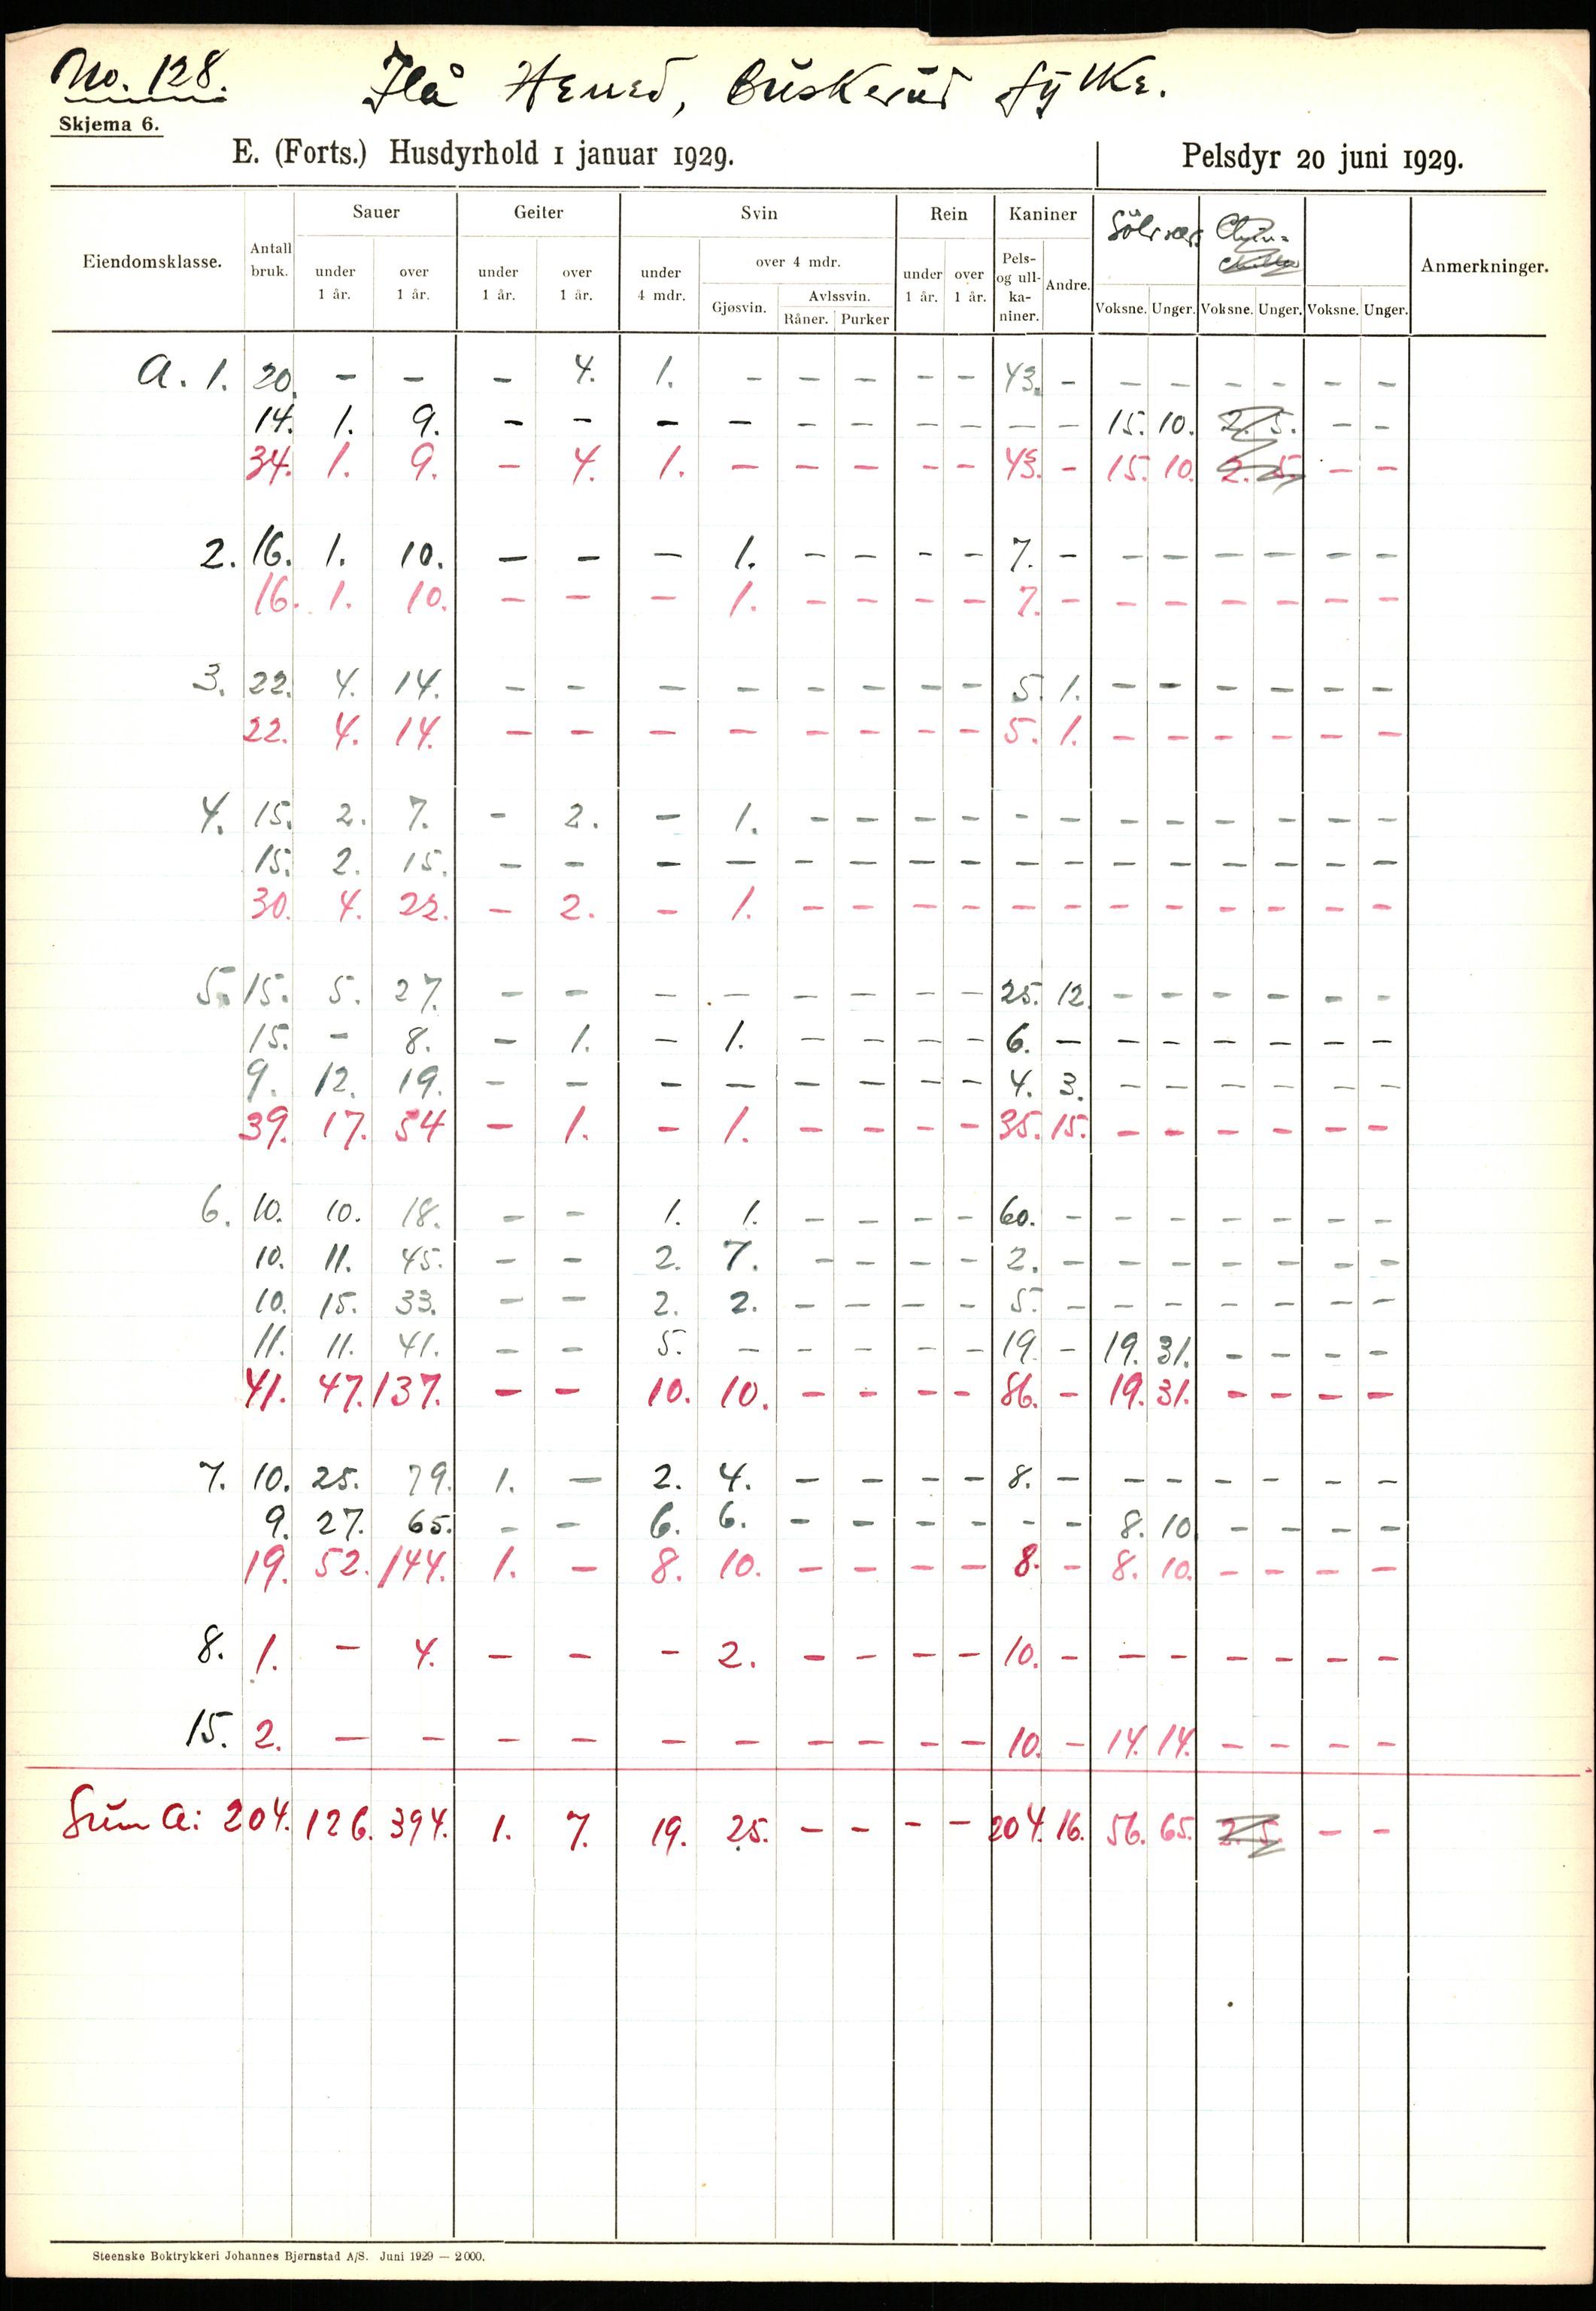 No. 128. Flå Herred, Buskerud fylke.
Skjema 6.
E. (Forts.) Husdyrhold 1 januar 1929. Pelsdyr 20 juni 1929.
Eiendomsklasse. Antall bruk. Sauer Geiter Svin Rein Kaniner Sölvrev. Chin-chilla Anmerkninger.
under 1 år. over 1 år. under 1 år. over 1 år. under 4 mdr. over 4 mdr. under 1 år. over 1 år. Pels- og ull-ka-niner. Andre.
Gjøsvin. Avlssvin. Voksne. Unger. Voksne. Unger. Voksne. Unger.
Råner. Purker
A. 1. 20. - - - 4. 1. - - - - - 43. - - - - - - -
14. 1. 9. - - - - - - - - - - 15. 10. 2. 5. - -
34. 1. 9. - 4. 1. - - - - - 43. - 15. 10. 2. 5. - -
2. 16. 1. 10. - - - 1. - - - - 7. - - - - - - -
16. 1. 10. - - - 1. - - - - 7. - - - - - - -
3. 22. 4. 14. - - - - - - - - 5. 1. - - - - - -
22. 4. 14. - - - - - - - - 5. 1. - - - - - -
4. 15. 2. 7. - 2. - 1. - - - - - - - - - - - -
15. 2. 15. - - - - - - - - - - - - - - - -
30. 4. 22. - 2. - 1. - - - - - - - - - - - -
5. 15. 5. 27. - - - - - - - - 25. 12. - - - - - -
15. - 8. - 1. - 1. - - - - 6. - - - - - - -
9. 12. 19. - - - - - - - - 4. 3. - - - - - -
39. 17. 54 - 1. - 1. - - - - 35. 15. - - - - - -
6. 10. 10. 18. - - 1. 1. - - - - 60. - - - - - - -
10. 11. 45. - - 2. 7. - - - - 2. - - - - - - -
10. 15. 33. - - 2. 2. - - - - 5. - - - - - - -
11. 11. 41. - - 5. - - - - - 19. - 19. 31. - - - -
41. 47. 137. - - 10. 10. - - - - 86. - 19. 31. - - - -
7. 10. 25. 79. 1. - 2. 4. - - - - 8. - - - - - - -
9. 27. 65. - - 6. 6. - - - - - - 8. 10 - - - -
19. 52. 144. 1. - 8. 10. - - - - 8. - 8. 10. - - - -
8. 1. - 4. - - - 2. - - - - 10. - - - - - - -
15. 2. - - - - - - - - - - 10. - 14. 14. - - - -
Sum A: 204. 126. 394. 1. 7. 19. 25. - - - - 204. 16. 56. 65. 2. 5. - -
Steenske Boktrykkeri Johannes Bjørnstad A/S. Juni 1929 — 2000.